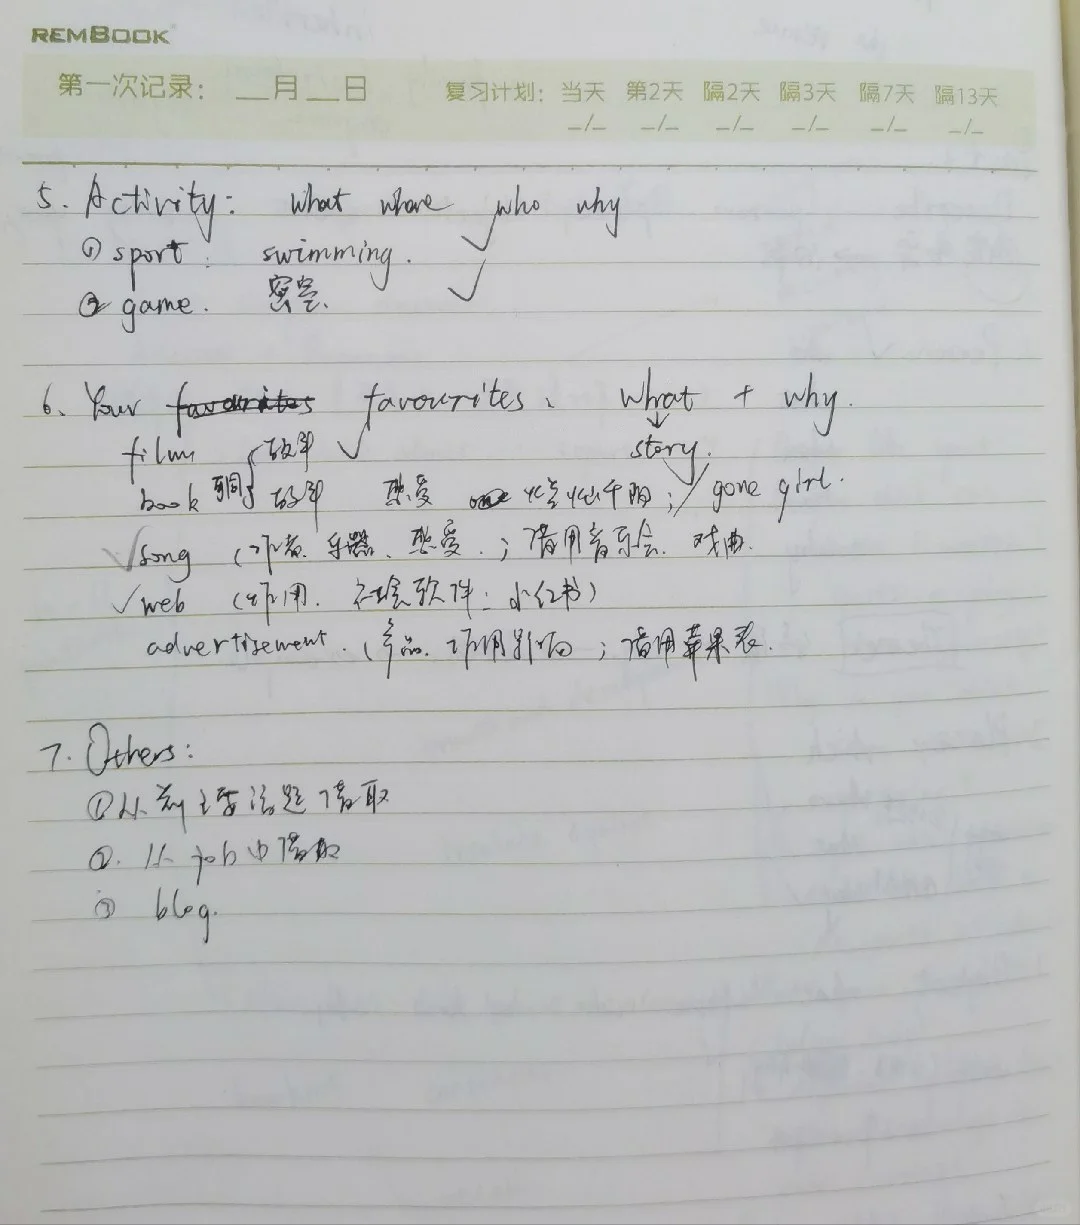 REMBOOK
第一次记录: __月__日 复习计划: 当天 第2天 隔2天 隔3天 隔7天 隔13天
_/_ _/_ _/_ _/_ _/_ _/_
5. Activity: what where who why
① sport: swimming.
② game. 密室.
6. Your favourites favourites. what + why.
film 故事 story.
book 故事 热爱 灿烂千阳; gone girl.
song (作者. 乐器. 热爱.; 借用音乐会. 戏曲.
web (作用. 社会软件: 小红书)
advertisement. (产品. 作用影响; 借用苹果表.
7. Others:
① 从主要话题借取
② 从 job 中借取
③ blog.